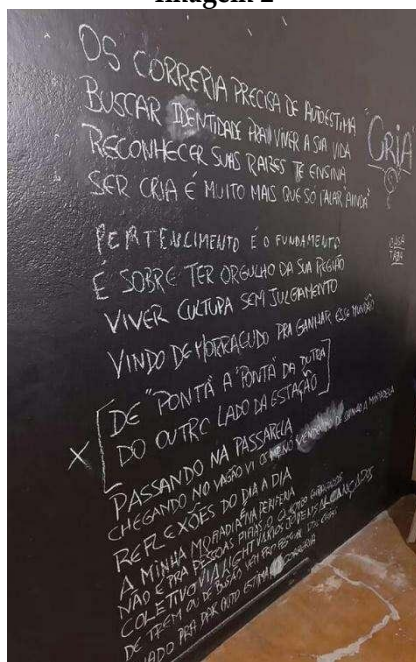 Imagem 2
OS CORRERIA PRECISA DE AUTOESTIMA
BUSCAR IDENTIDADE PRA VIVER A SUA VIDA
RECONHECER SUAS RAIZES TE ENSINA
SER CRIA É MUITO MAIS QUE SÓ FALAR AINDA
"CRIA"
PERTENCIMENTO É O FUNDAMENTO
É SOBRE TER ORGULHO DA SUA REGIÃO
VIVER CULTURA SEM JULGAMENTO
VINDO DE MORRAGUDO PRA GANHAR ESSE MUNDÃO
CASA
X DE "PONTA A PONTA" DA DUTRA
DO OUTRO LADO DA ESTAÇÃO
PASSANDO NA PASSARELA
CHEGANDO NO VAGÃO VI O MENO VENDENDO
REFLEXÕES DO DIA A DIA
A MINHA MORADIA É NA PERIFERIA
NÃO É PRA PESSOAS
COLETIVO VIA LIGHT VÁRIOS JOVENS ALCANÇADOS
DE TREM OU DE BUSÃO VEM
PRA AUTO ESTIMA